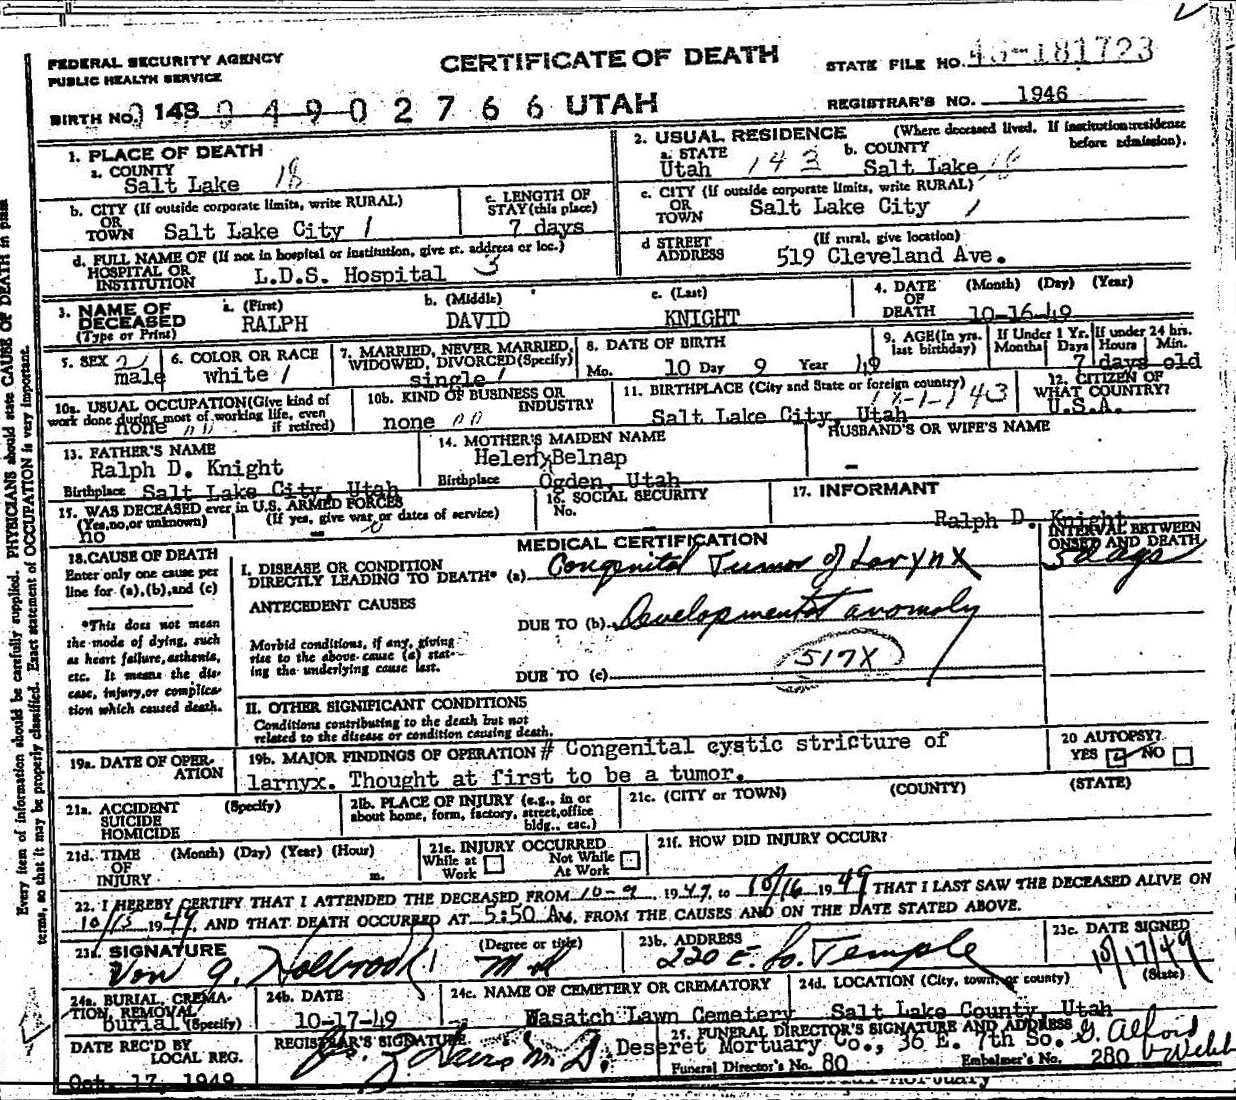 FEDERAL SECURITY AGENCY
PUBLIC HEALTH SERVICE
CERTIFICATE OF DEATH
STATE FILE NO. 49-181723
BIRTH NO. 143 0 4 9 0 2 7 6 6 UTAH
REGISTRAR'S NO. 1946
1. PLACE OF DEATH
a. COUNTY
Salt Lake 18
2. USUAL RESIDENCE (Where deceased lived. If institution:residence before admission).
a. STATE
Utah 143
b. COUNTY
Salt Lake 18
b. CITY (If outside corporate limits, write RURAL)
OR
TOWN Salt Lake City 1
c. LENGTH OF
STAY (this place)
7 days
c. CITY (If outside corporate limits, write RURAL)
OR
TOWN Salt Lake City 1
d. FULL NAME OF (If not in hospital or institution, give st. address or loc.)
HOSPITAL OR
INSTITUTION L.D.S. Hospital 3
d STREET
ADDRESS
(If rural, give location)
519 Cleveland Ave.
3. NAME OF
DECEASED
(Type or Print)
a. (First)
RALPH
b. (Middle)
DAVID
c. (Last)
KNIGHT
4. DATE
OF
DEATH
(Month) (Day) (Year)
10-16-49
5. SEX
male
6. COLOR OR RACE
white 1
7. MARRIED, NEVER MARRIED,
WIDOWED, DIVORCED (Specify)
single 1
8. DATE OF BIRTH
Mo. 10 Day 9 Year 49
9. AGE (In yrs.
last birthday)
If Under 1 Yr.
Months Days
If under 24 hrs.
Hours Min.
7 days old
10a. USUAL OCCUPATION (Give kind of
work done during most of working life, even
if retired)
none
10b. KIND OF BUSINESS OR
INDUSTRY
none
11. BIRTHPLACE (City and State or foreign country)
Salt Lake City, Utah
12. CITIZEN OF
WHAT COUNTRY?
U.S.A.
13. FATHER'S NAME
Ralph D. Knight
Birthplace Salt Lake City, Utah
14. MOTHER'S MAIDEN NAME
Helen Belnap
Birthplace Ogden, Utah
HUSBAND'S OR WIFE'S NAME
-
15. WAS DECEASED ever in U.S. ARMED FORCES
(Yes, no, or unknown) (If yes, give war or dates of service)
no - 0
16. SOCIAL SECURITY
No. -
17. INFORMANT
Ralph D. Knight
18. CAUSE OF DEATH
Enter only one cause per
line for (a), (b), and (c)
*This does not mean
the mode of dying, such
as heart failure, asthenia,
etc. It means the dis-
ease, injury, or complica-
tion which caused death.
MEDICAL CERTIFICATION
INTERVAL BETWEEN
ONSET AND DEATH
I. DISEASE OR CONDITION
DIRECTLY LEADING TO DEATH* (a) Congenital Tumor of Larynx
5 days
ANTECEDENT CAUSES
DUE TO (b) Developmental anomoly
Morbid conditions, if any, giving
rise to the above cause (a) stat-
ing the underlying cause last.
517X
DUE TO (c)
II. OTHER SIGNIFICANT CONDITIONS
Conditions contributing to the death but not
related to the disease or condition causing death.
19a. DATE OF OPER-
ATION
19b. MAJOR FINDINGS OF OPERATION # Congenital cystic stricture of
larnyx. Thought at first to be a tumor.
20 AUTOPSY?
YES NO
21a. ACCIDENT
SUICIDE
HOMICIDE
(Specify)
21b. PLACE OF INJURY (e.g., in or
about home, form, factory, street, office
bldg., eac.)
21c. (CITY or TOWN) (COUNTY) (STATE)
21d. TIME
OF
INJURY
(Month) (Day) (Year) (Hour)
m.
21e. INJURY OCCURRED
While at
Work
Not While
At Work
21f. HOW DID INJURY OCCUR?
22. I HEREBY CERTIFY THAT I ATTENDED THE DECEASED FROM 10-9 1949, to 10/16 1949 THAT I LAST SAW THE DECEASED ALIVE ON
10/15 1949, AND THAT DEATH OCCURRED AT 5:50 AM, FROM THE CAUSES AND ON THE DATE STATED ABOVE.
23a. SIGNATURE
Von G. Holbrook
(Degree or title)
M d
23b. ADDRESS
220 E. So. Temple
23c. DATE SIGNED
10/17/49
24a. BURIAL, CREMA-
TION, REMOVAL
(Specify)
burial
24b. DATE
10-17-49
24c. NAME OF CEMETERY OR CREMATORY
Wasatch Lawn Cemetery
24d. LOCATION (City, town, or county) (State)
Salt Lake County, Utah
DATE REC'D BY
LOCAL REG.
Oct. 17, 1949
REGISTRAR'S SIGNATURE
M.D.
25. FUNERAL DIRECTOR'S SIGNATURE AND ADDRESS
Deseret Mortuary Co., 36 E. 7th So. G. Alford Webb
Funeral Director's No. 80
Embalmer's No. 280
Every item of information should be carefully supplied. PHYSICIANS should state CAUSE OF DEATH in plain
terms, so that it may be properly classified. Exact statement of OCCUPATION is very important.